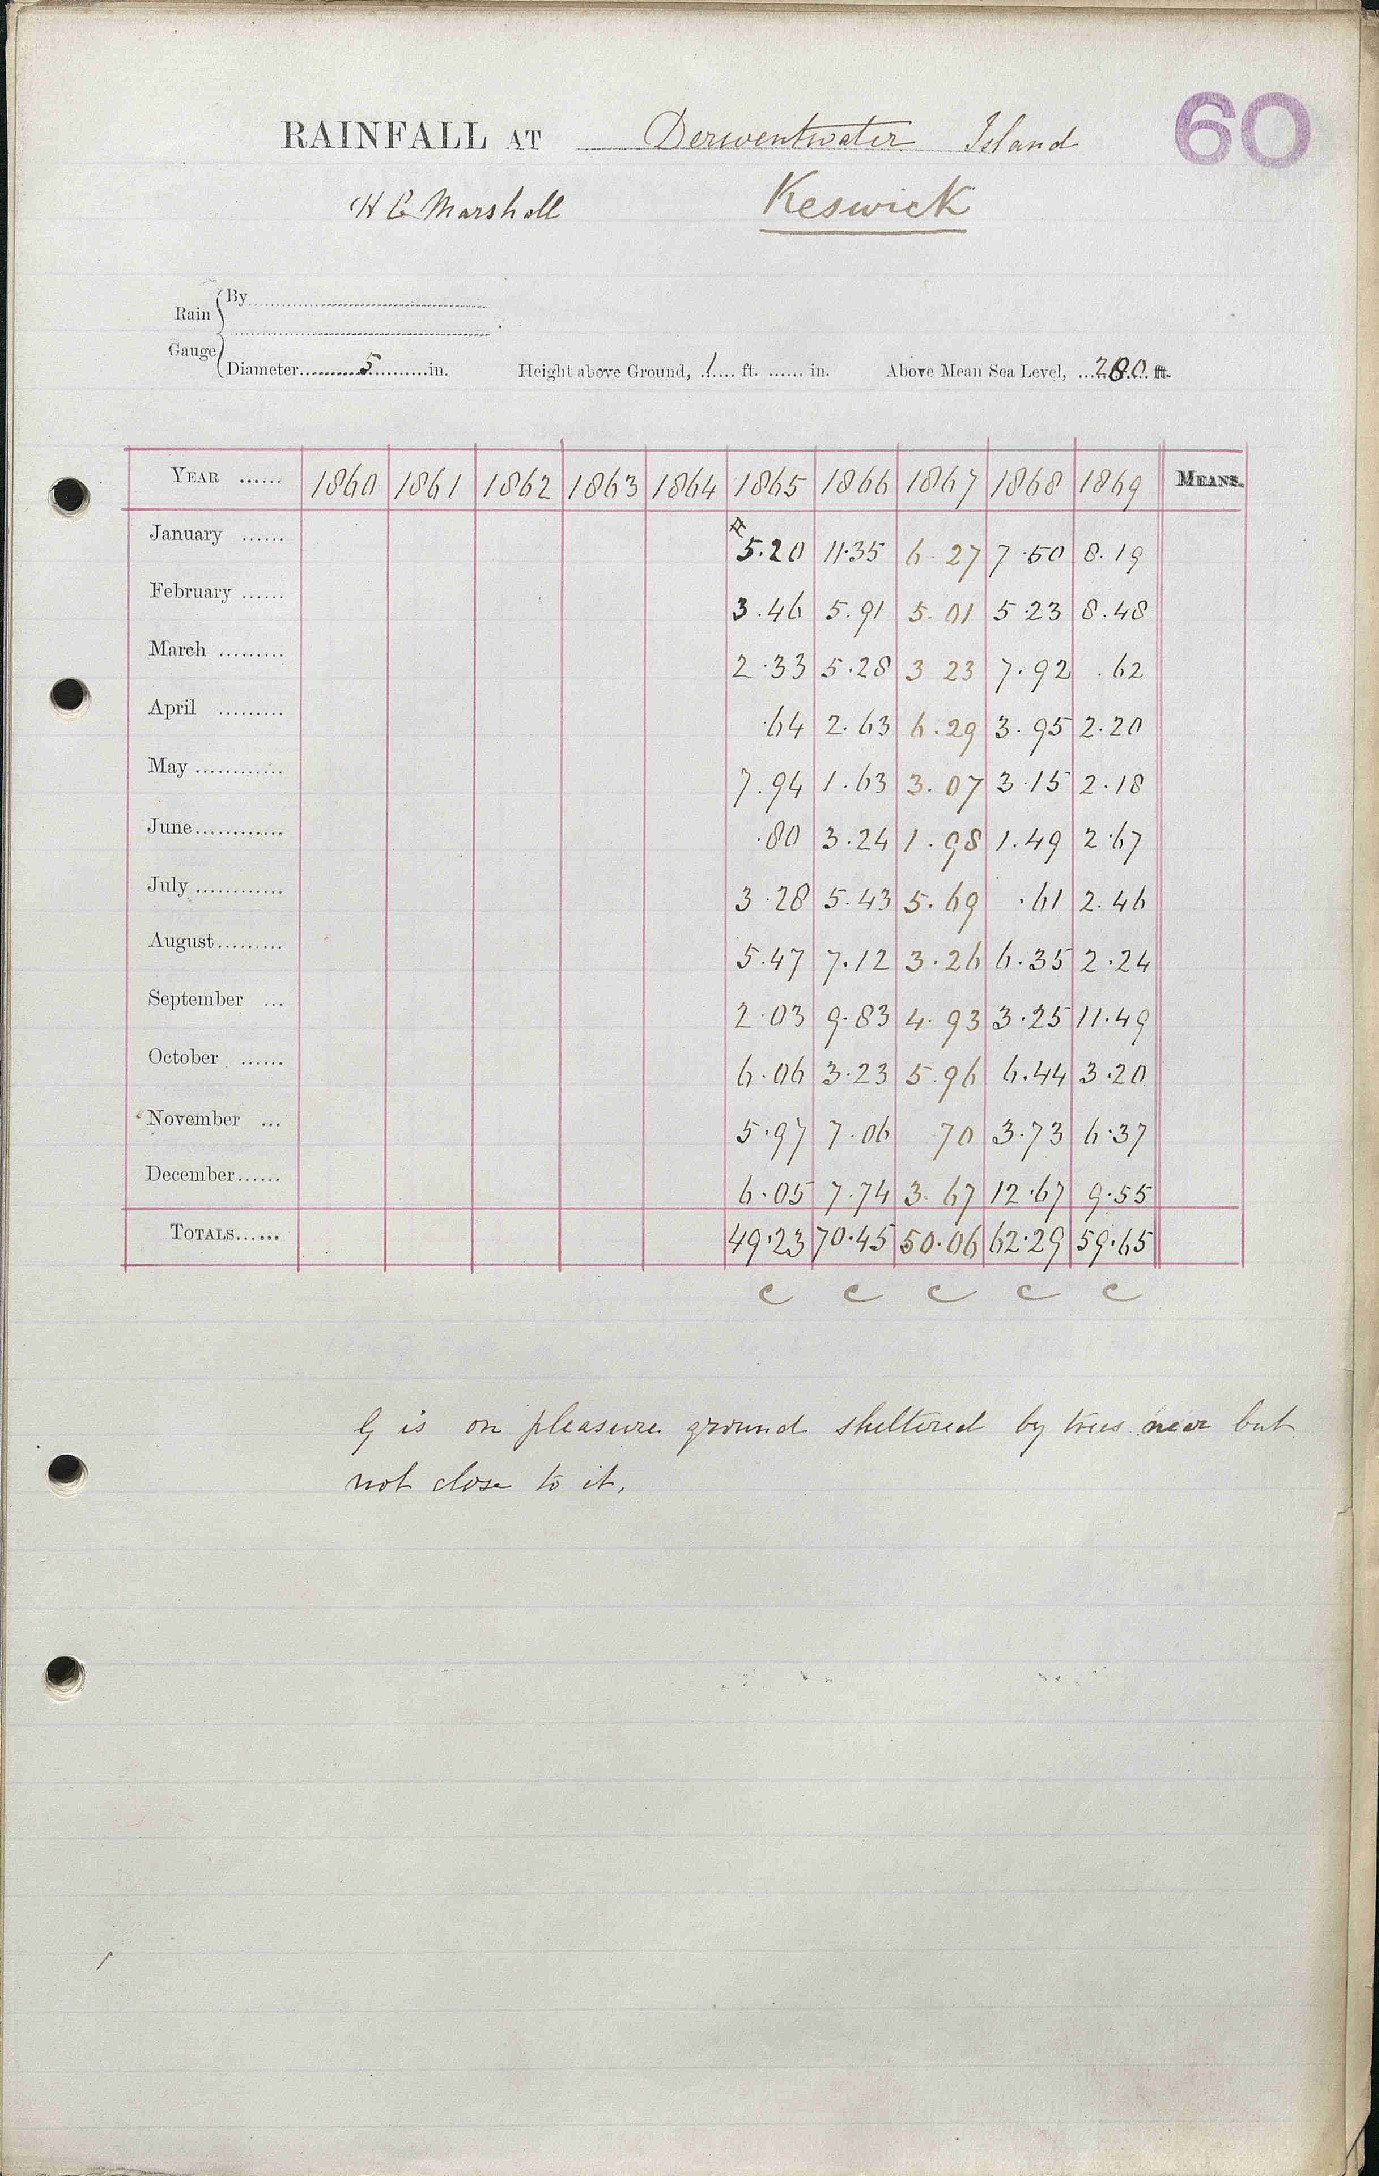 RAINFALL AT Derwentwater Island 60
H C Marshall Keswick
Rain Gauge
By
Diameter 5 in. Height above Ground, 1 ft. in. Above Mean Sea Level, ft.
YEAR 1860 1861 1862 1863 1864 1865 1866 1867 1868 1869 MEANS.
January 5.20 11.35 6.27 7.50 8.19
February 3.46 5.91 5.01 5.23 8.48
March 2.33 5.28 3 23 7.92 .62
April .64 2.63 6.29 3.95 2.20
May 7.94 1.63 3.07 3.15 2.18
June .80 3.24 1.98 1.49 2.67
July 3.28 5.43 5.69 .61 2.46
August 5.47 7.12 3.26 6.35 2.24
September 2.03 9.83 4.93 3.25 11.49
October 6.06 3.23 5.96 6.44 3.20
November 5.97 7.06 70 3.73 6.37
December 6.05 7.74 3.67 12.67 9.55
TOTALS 49.23 70.45 50.06 62.29 59.65
c c c c c
G is on pleasure ground sheltered by trees near but
not close to it.